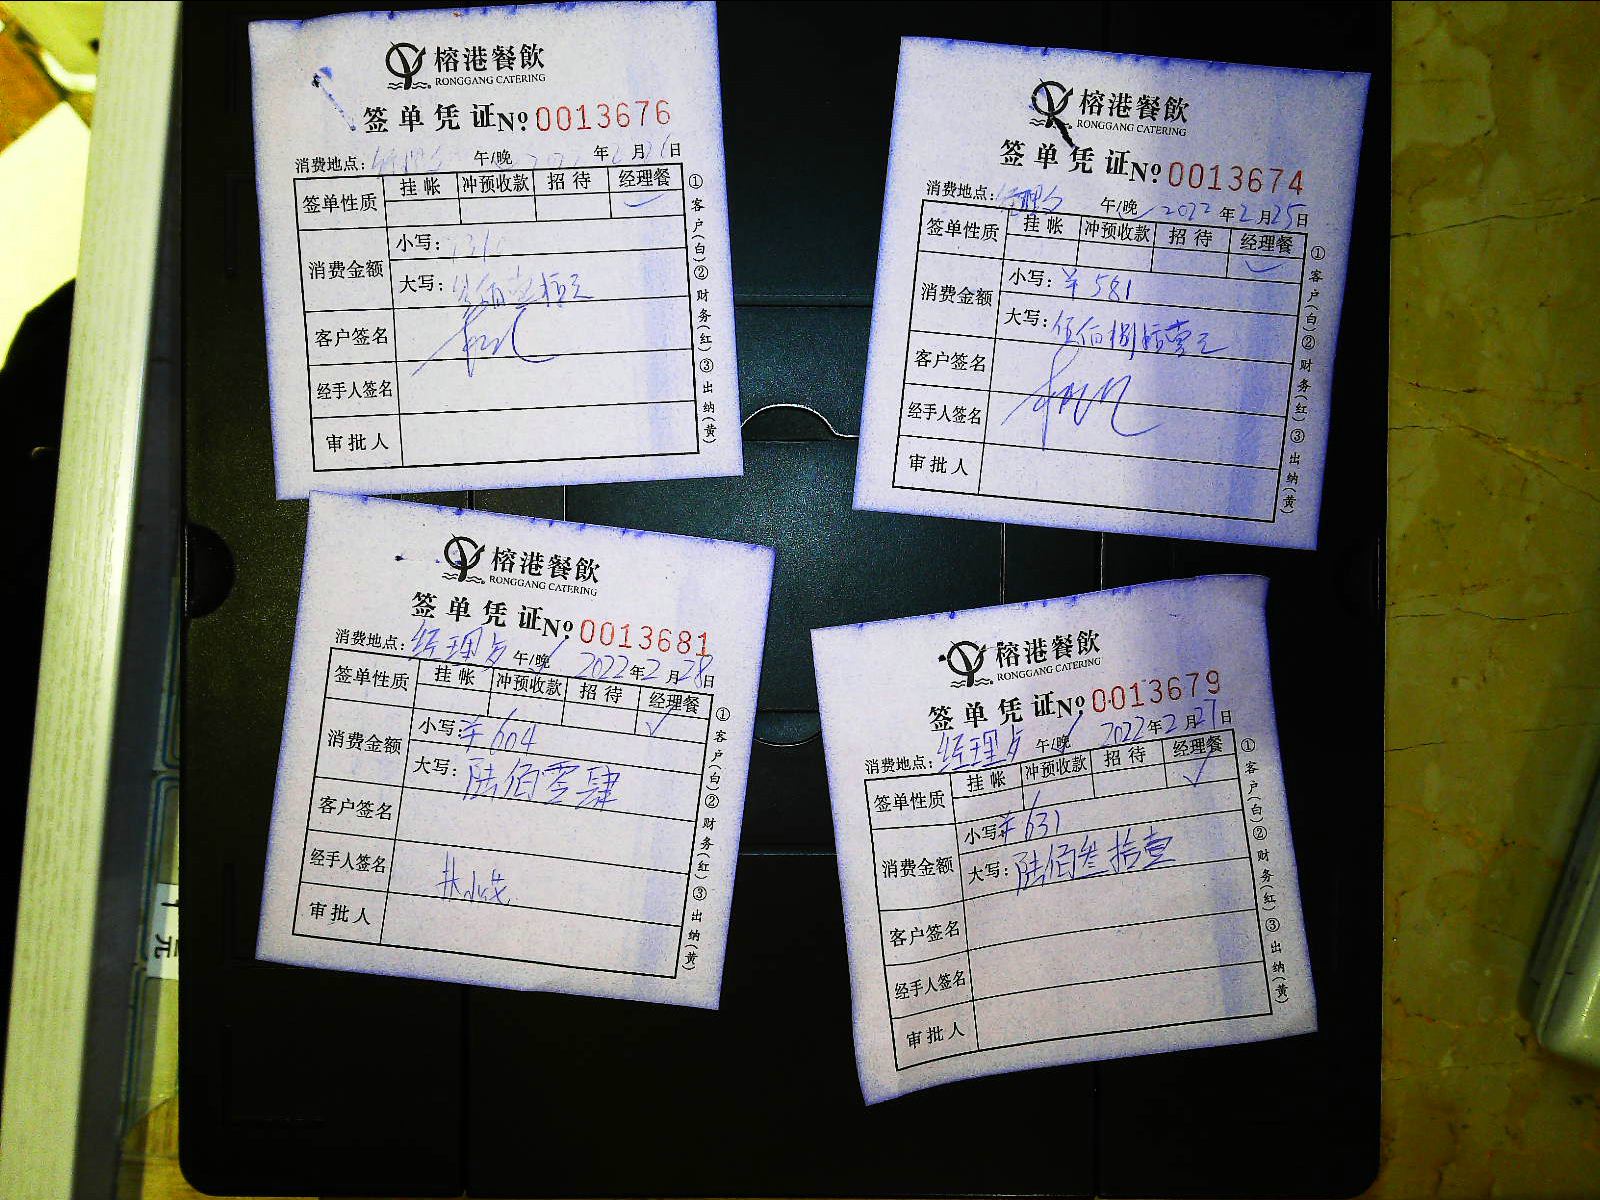 榕港餐飲
RONGGANG CATERING
签单凭证 Nº 0013676
消费地点: 午/晚 年 月 日
签单性质 挂帐 冲预收款 招待 经理餐
消费金额 小写:
大写:
客户签名
经手人签名
审批人
①客户(白)②财务(红)③出纳(黄)
榕港餐飲
RONGGANG CATERING
签单凭证 Nº 0013674
消费地点: 午/晚 2022年2月25日
签单性质 挂帐 冲预收款 招待 经理餐
消费金额 小写: ¥581
大写: 伍佰捌拾壹元
客户签名
经手人签名
审批人
①客户(白)②财务(红)③出纳(黄)
榕港餐飲
RONGGANG CATERING
签单凭证 Nº 0013681
消费地点: 经理 午/晚 2022年2月28日
签单性质 挂帐 冲预收款 招待 经理餐 ✓
消费金额 小写: ¥604
大写: 陆佰零肆
客户签名
经手人签名
审批人
①客户(白)②财务(红)③出纳(黄)
榕港餐飲
RONGGANG CATERING
签单凭证 Nº 0013679
消费地点: 经理 午/晚 2022年2月27日
签单性质 挂帐 冲预收款 招待 经理餐 ✓
消费金额 小写: ¥631
大写: 陆佰叁拾壹
客户签名
经手人签名
审批人
①客户(白)②财务(红)③出纳(黄)
元